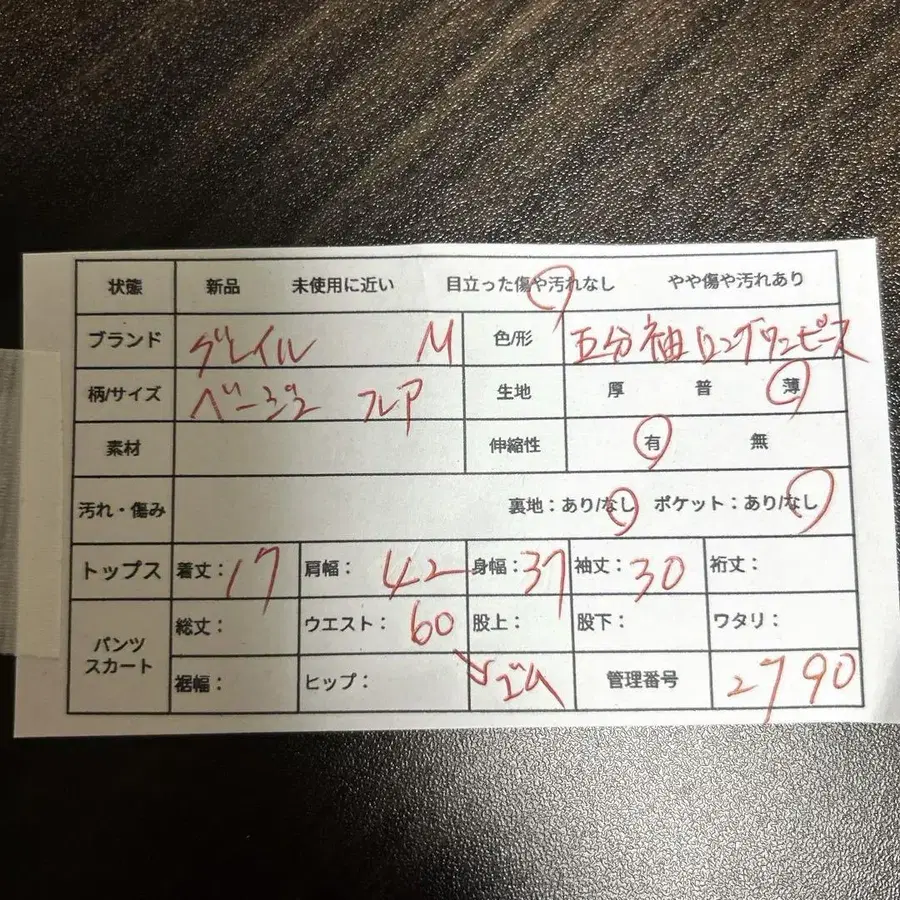 状態 新品 未使用に近い 目立った傷や汚れなし やや傷や汚れあり
ブランド グレイル M 色/形 五分袖ロングワンピース
柄/サイズ ベージュ フレア 生地 厚 普 薄
素材 伸縮性 有 無
汚れ・傷み 裏地：あり/なし ポケット：あり/なし
トップス 着丈：17 肩幅：42 身幅：37 袖丈：30 裄丈：
パンツ スカート 総丈： ウエスト：60 股上： 股下： ワタリ：
裾幅： ヒップ： ゴム 管理番号 2790